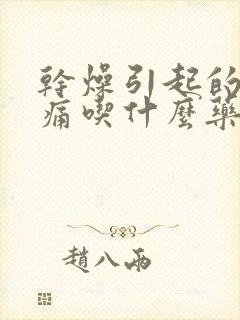 幹燥引起的
痛喫什麼藥
趙八兩